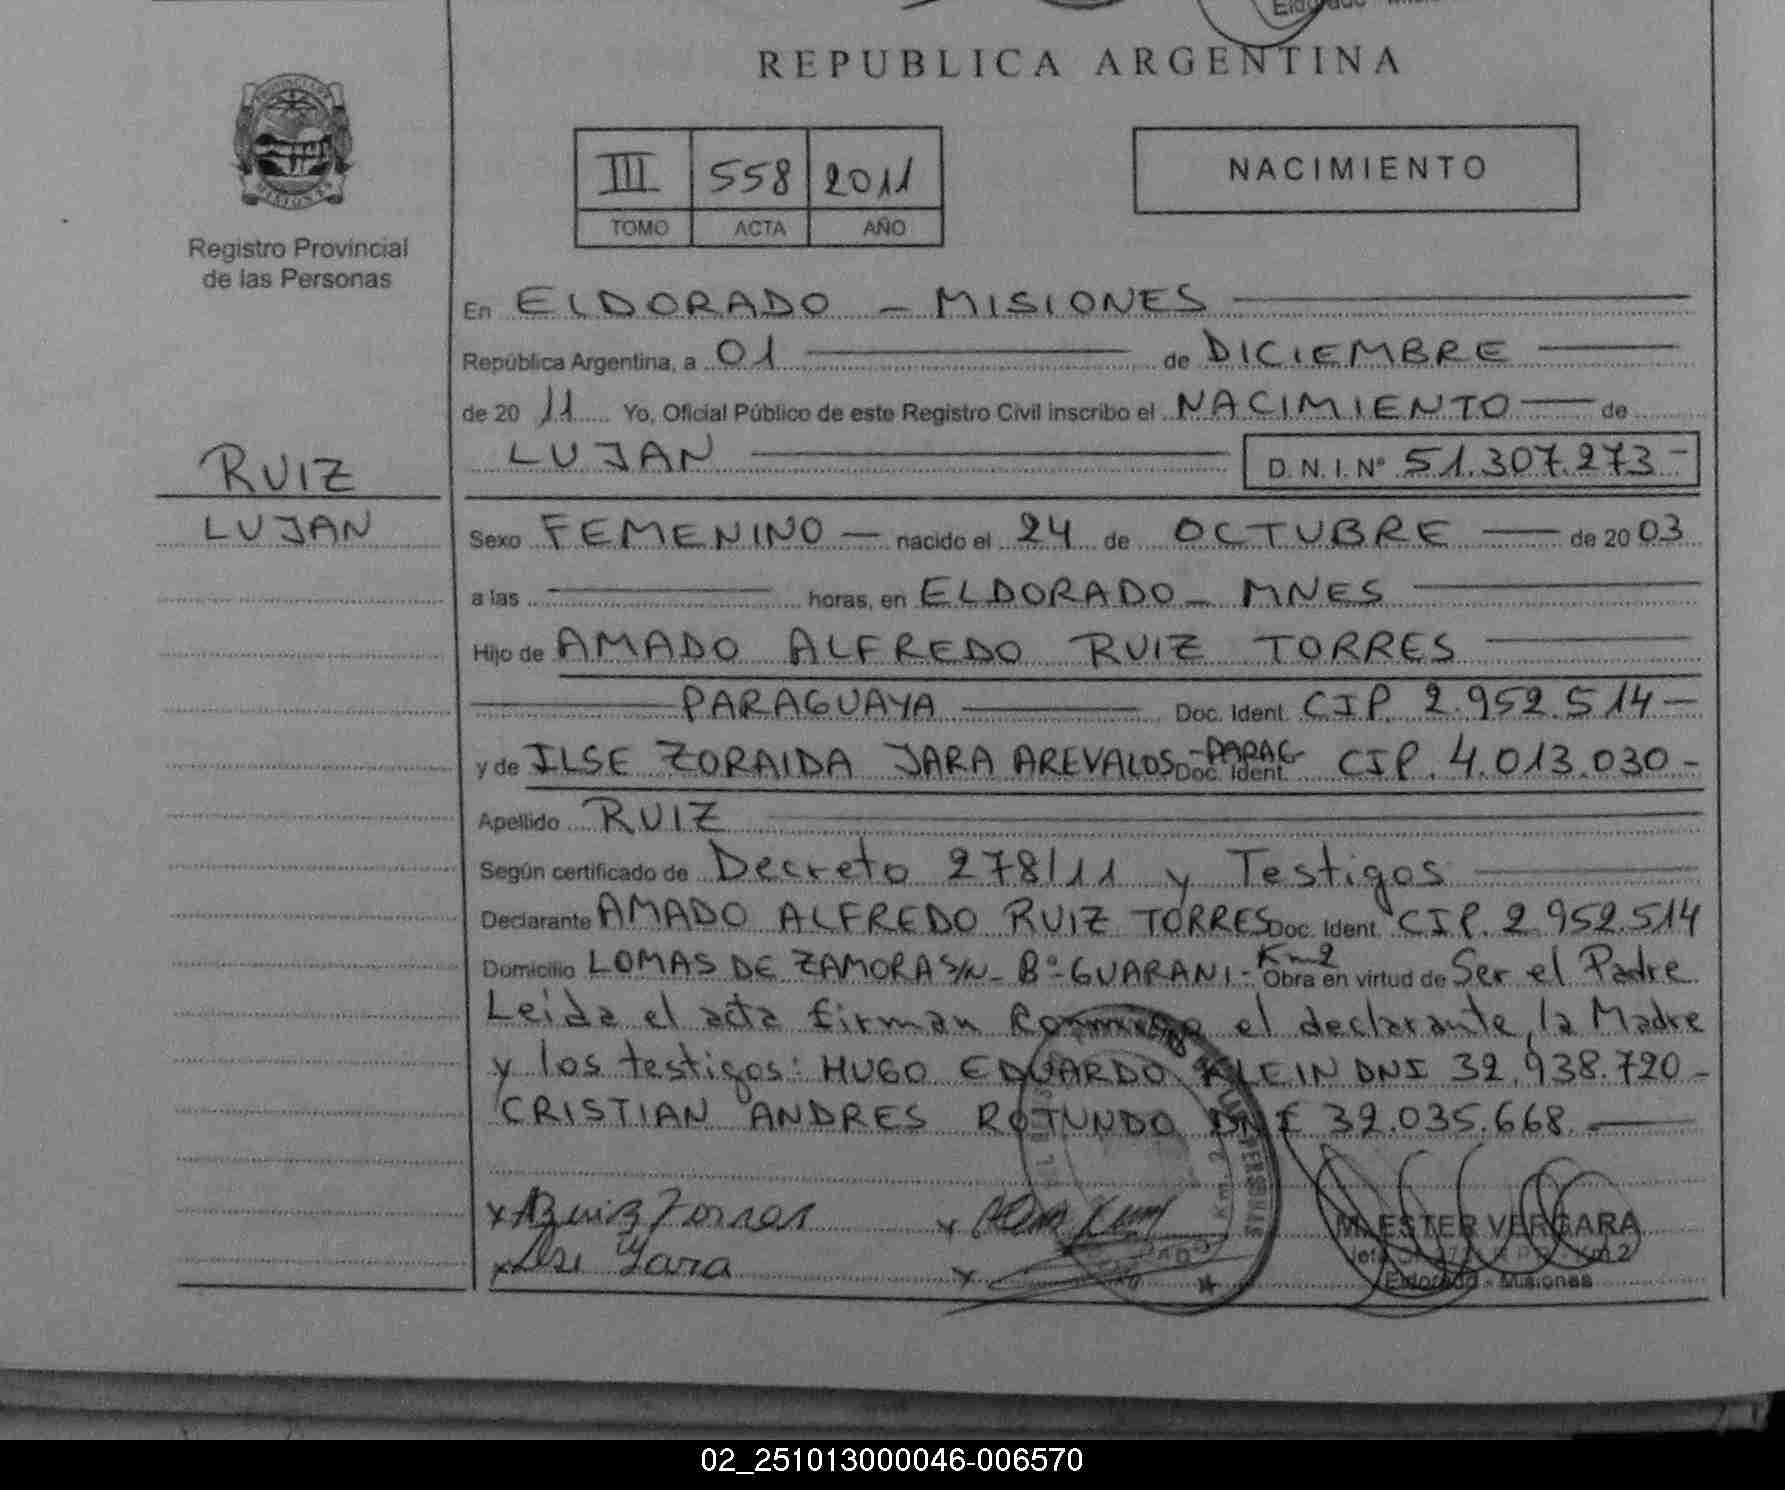 REPUBLICA ARGENTINA
III 558 2011
TOMO ACTA AÑO
NACIMIENTO
Registro Provincial
de las Personas
En ELDORADO - MISIONES
República Argentina, a 01 de DICIEMBRE
de 20 11 Yo, Oficial Público de este Registro Civil inscribo el NACIMIENTO de
LUJAN D.N.I.Nº 51.307.273-
RUIZ
LUJAN
Sexo FEMENINO nacido el 24 de OCTUBRE de 20 03
a las horas, en ELDORADO - MNES
Hijo de AMADO ALFREDO RUIZ TORRES
PARAGUAYA Doc. Ident. CIP. 2.952.514-
y de ILSE ZORAIDA JARA AREVALOS -PARAG- Doc. Ident. CIP. 4.013.030-
Apellido RUIZ
Según certificado de Decreto 278/11 y Testigos
Declarante AMADO ALFREDO RUIZ TORRES Doc. Ident. CIP. 2.952.514
Domicilio LOMAS DE ZAMORA S/N - Bº-GUARANI - Km2 Obra en virtud de Ser el Padre
Leida el acta firman Conmigo el declarante, la Madre
y los testigos: HUGO EDUARDO KLEIN DNI 32.938.720-
CRISTIAN ANDRES ROTUNDO DNI 32.035.668.
x A Ruiz Torres x
x Ilse Jara x
M. ESTER VERGARA
Km 2
Eldorado - Misiones
02_251013000046-006570